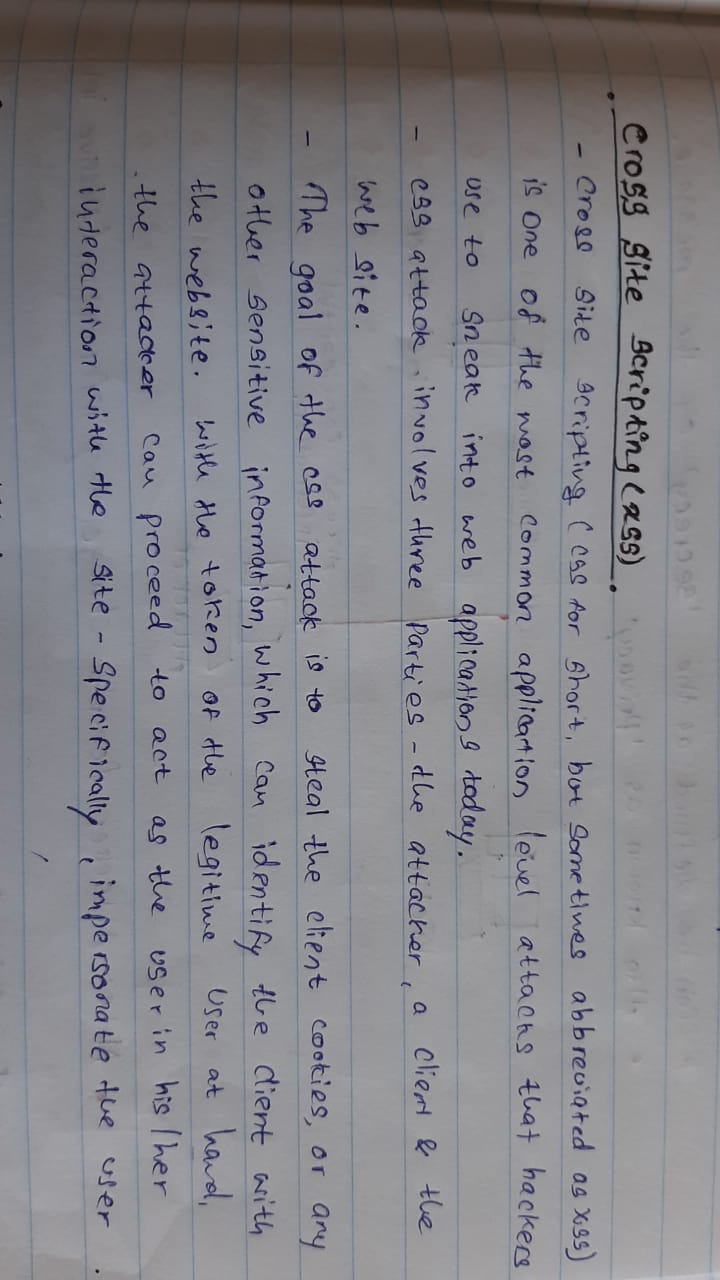 Cross Site Scripting (XSS).
- Cross Site Scripting (CSS for short, but sometimes abbreviated as XSS)
is one of the most common application level attacks that hackers
use to sneak into web applications today.
- CSS attack involves three Parties - the attacker, a client & the
web site.
- The goal of the CSS attack is to steal the client cookies, or any
other sensitive information, which can identify the client with
the website. With the token of the legitime User at hand,
the attacker can proceed to act as the user in his/her
interaction with the site - Specifically, impersonate the user.